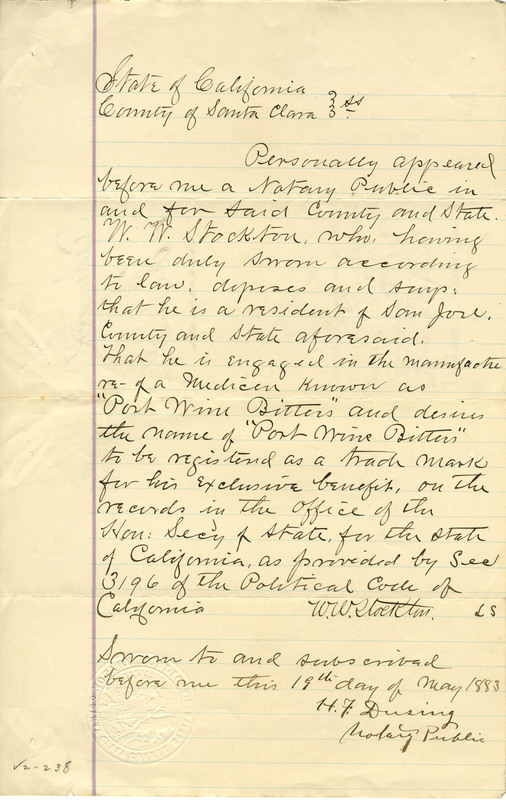 State of California
County of Santa Clara } ss.
Personally appeared
before me a Notary Public in
and for said County and State.
W. W. Stockton, who, having
been duly sworn according
to law, deposes and says:
that he is a resident of San Jose,
County and State aforesaid.
That he is engaged in the manufactu
re- of a Medicen known as
"Port Wine Bitters" and desires
the name of "Port Wine Bitters"
to be registered as a trade mark
for his exclusive benefit, on the
records in the office of the
Hon: Secy of State, for the State
of California, as provided by Sec
3196 of the Political Code of
California W.W. Stockton. LS
Sworn to and subscribed
before me this 19th day of May 1883
H. F. Dusing
Notary Public
V2-238